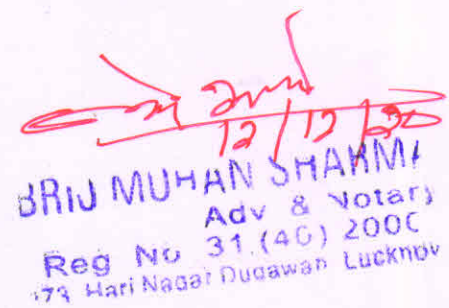 12/12/20
BRIJ MUHAN SHARMA
Adv & Notary
Reg No 31.(40) 2000
73 Hari Nagar Dugawan Lucknow